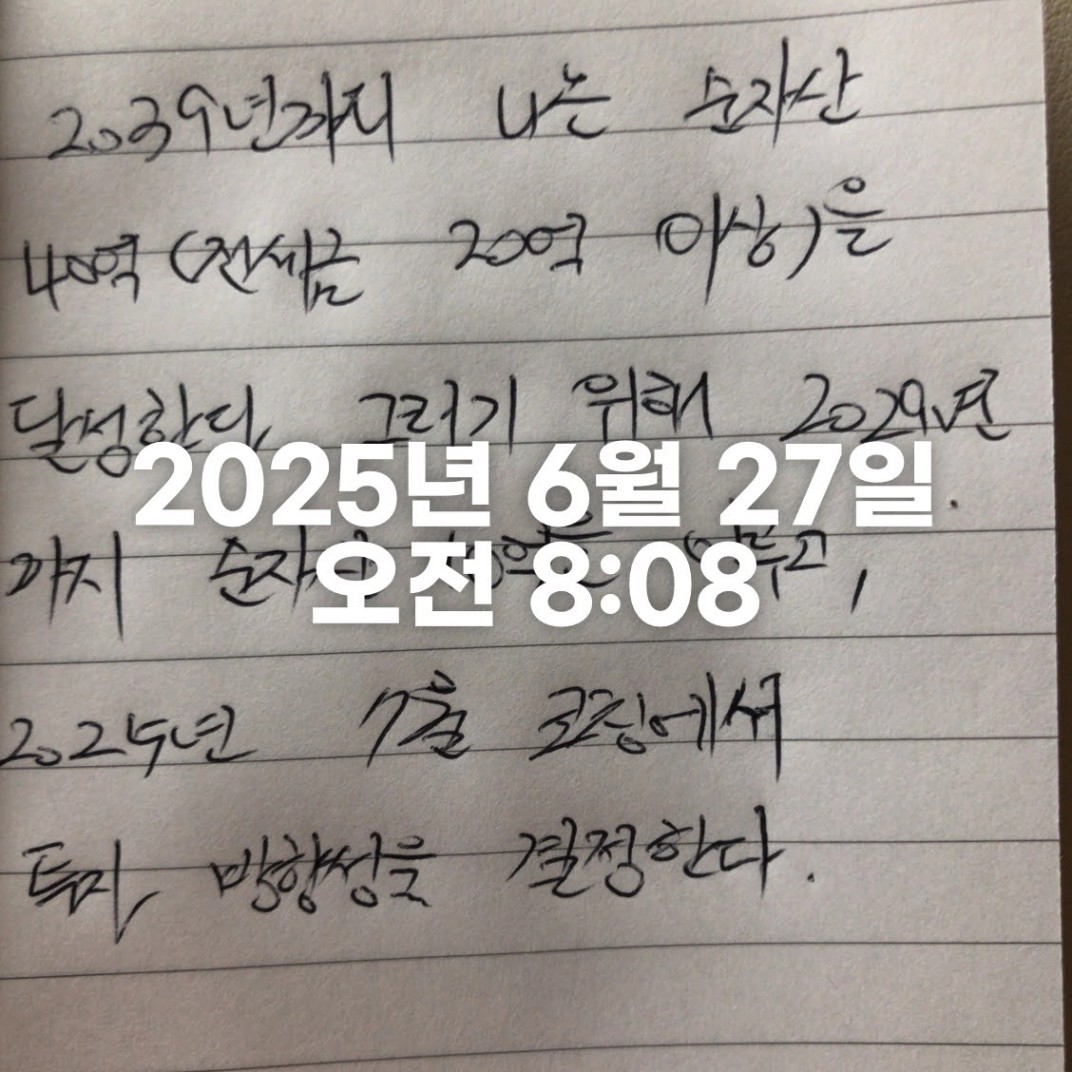 2039년까지 나는 순자산
40억 (전세금 20억 이상)을
달성한다. 그러기 위해 2029년
2025년 6월 27일
까지 순자산 10억을 이루고,
오전 8:08
2025년 7월 코칭에서
투자 방향성을 결정한다.